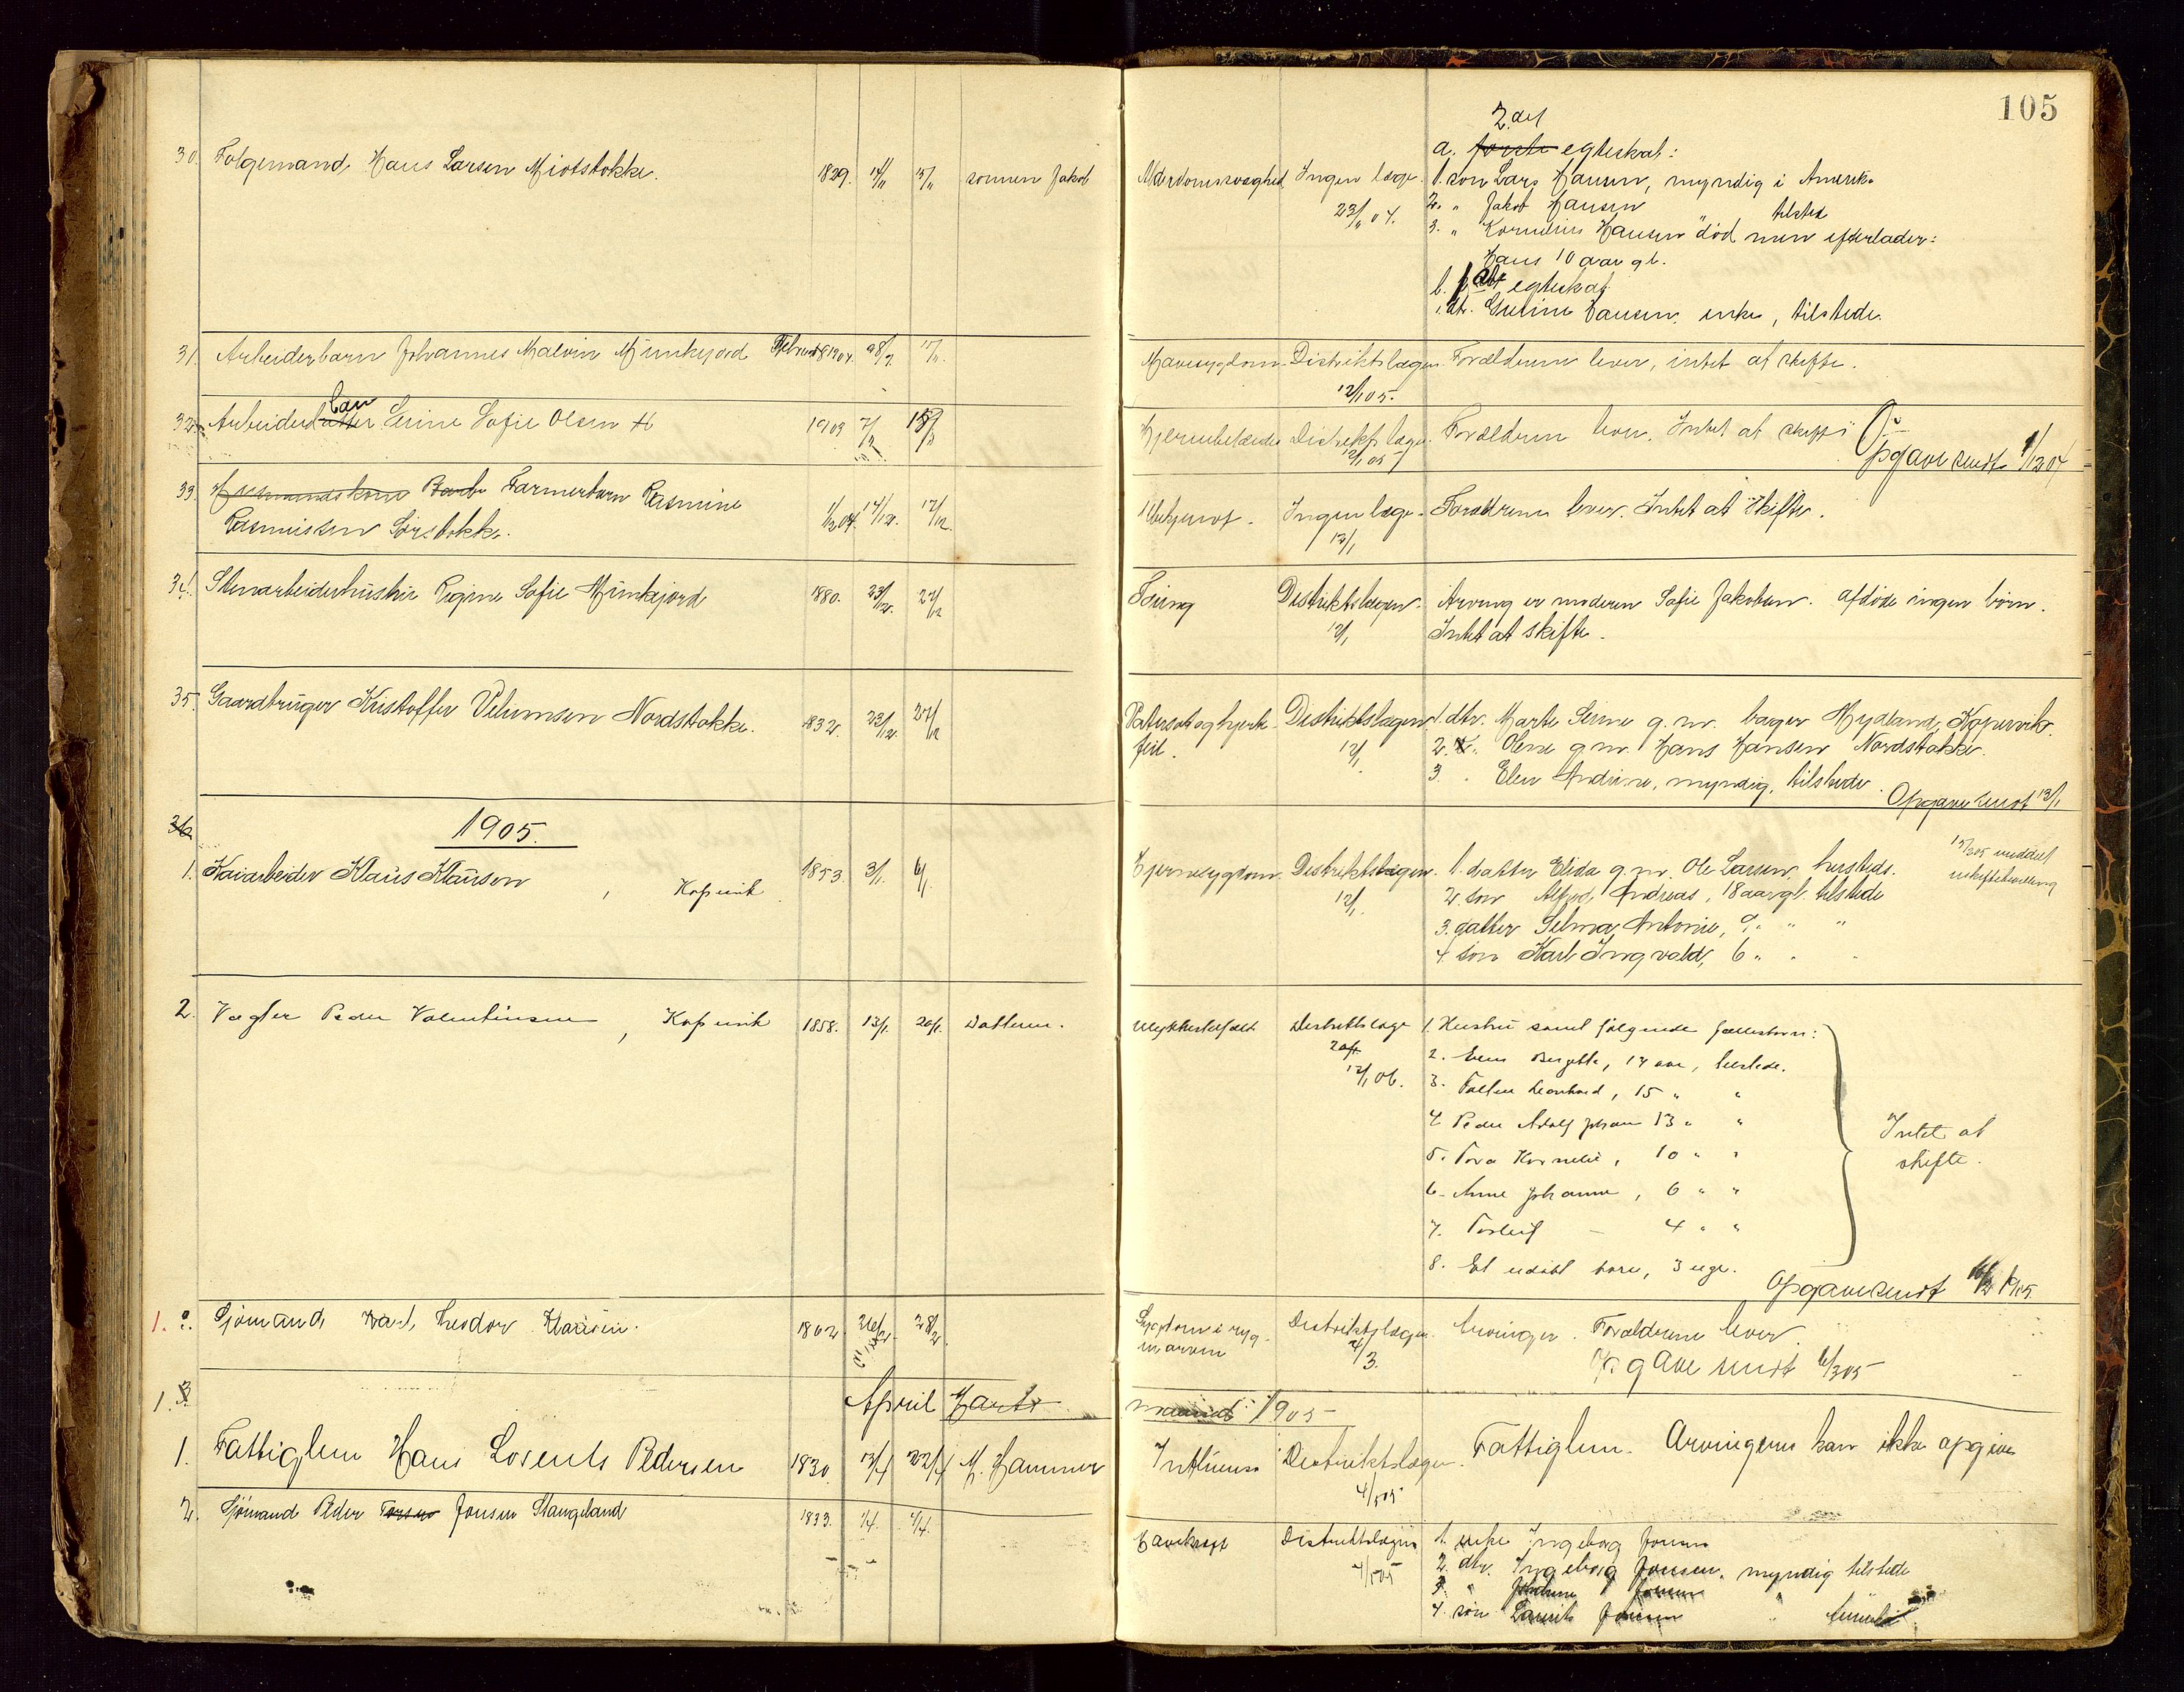 105
30. Folgemand, Hans Larsen Midtstokke. 1829. 14/11 15/11 sønnen Jakob
Alderdomssvaghed Ingen læge. 23/11 04.
2.det
a. første egteskab:
1. søn Lars Hansen, myndig i Amerika
2. " Jakob Hansen tilsted
3. " Kornelius Hansen død men efterlader:
Hans 10 aar gl.
b. egteskab
1. dtr. Gurine Hansen, enke, tilstede.
31. Arbeiderbarn Johannes Malvin Munkejord Februar 1904. 17/11.
Mavesygdom Distriktslægen. Forældrene lever, intet at skifte.
12/1 05.
barn
32. Arbeiderdatter Serine Sofie Olsen 1903
Distriktslægen. Forældrene lever. Intet at skifte
12/1 05
Opgave sendt 1/12 04
33. Husmandskone Barbr Farmerbarn Rasmine 14/12. 17/12.
Rasmussen Sørstokke.
Ingen læge. Forældrene lever. Intet at skifte.
12/1
34. Stenarbeiderhustru Regine Sofie Munkejord 1880. 23/12. 27/12
Tæring Distriktslægen. Arving er moderen Sofie Jakobsen. afdøde ingen børn.
12/1 Intet at skifte.
35. Gaardbruger Kristoffer Velumsen Nordstokke. 1832. 23/12. 27/12
Vatersot og hjertefeil. Distriktslægen 12/1
1. dtr. Marte Serine g. m. bager Mydland, Kopervik.
2. " Oline g. m. Hans Hansen Nordstokke.
3. " Elen Andrine, myndig, tilstede.
Opgave sendt 13/1
36
1905.
1. Kaiarbeider Klaus Klausen, Kopervik 1853. 3/1. 6/1.
Hjernesygdom. Distriktslægen. 12/1.
1. datter Elida g. m. Ole Larsen, hersteds.
2. søn Alfred Andreas, 18 aar gl. tilstede
3. datter Selma Antonie, 9 " " "
4. søn Karl Ingvald, 6 " "
meddelt
uskiftebevilling
2. Vægter Peder Valentinsen, Kopervik 1858. 13/1. 20/1. Datteren.
Ulykkestilfælde Distriktslæge
20/1
12/1 06.
1. Hustru samt følgende fællesbørn:
2. Bergitte, 17 aar, tilstede.
3. Leonhard, 15 " "
4. Peder Adolf Johan 13 " "
5. Tora Kornelie, 10 " "
6. Anne Johanne, 6 " "
7. Torleif – 4 " "
8. Et udøbt barn, 3 uger.
Intet at
skifte.
Opgave sendt 1905
1. Sjømand Karl Teodor Klausen. 28/2.
Sygdom i rygmarven Distriktslægen. 4/3.
Arvinger. Forældrene lever.
Opgave sendt 6/3 05
1. 3.
April Marts maaned 1905
1. Fattiglem Hans Lorents Pedersen 1830 13/4 22/4 M. Hammer
Influensa Distriktslægen. Fattiglem. Arvingerne kan ikke opgives
4/5 05
2. Sjømand Peder Jonsen Stangeland 1833.
Distriktslægen
4/5 05
1. enke Ingeborg Jonsen
2. dtr. Ingeborg Jonsen, myndig tilstede
3. " Jonsen
4. søn Laurits Jonsen "